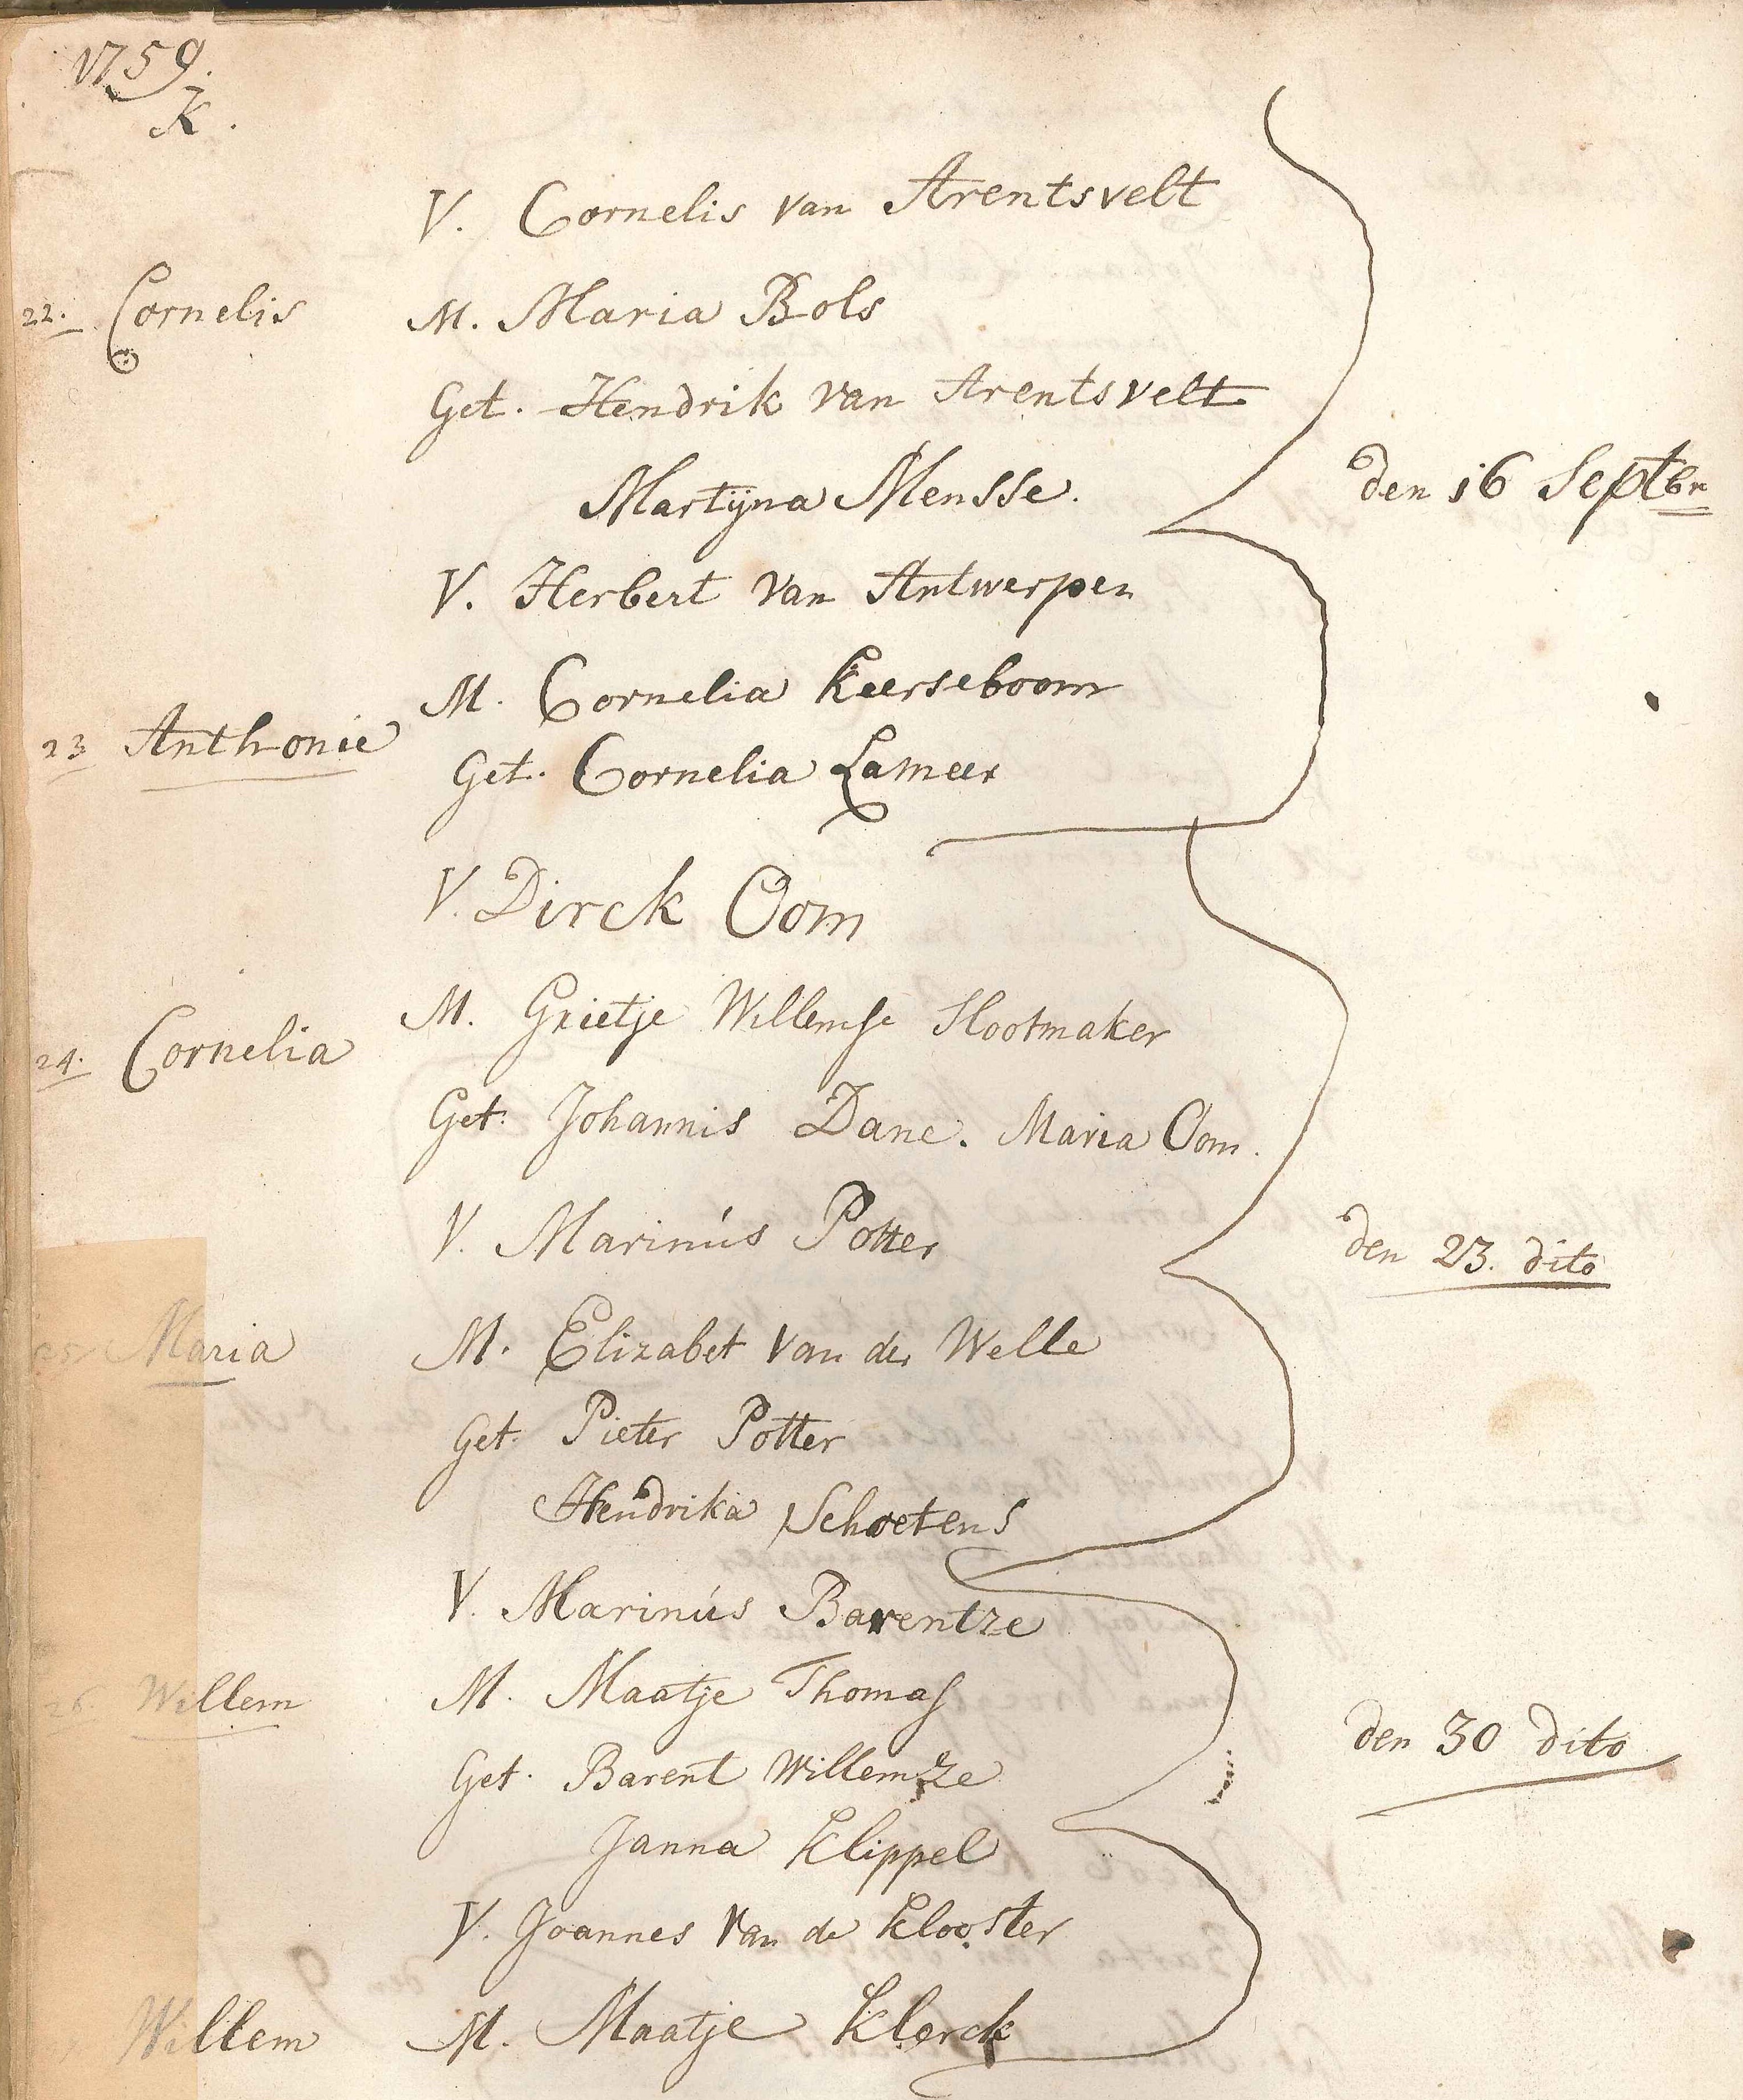 1759.
K.
V. Cornelis van Arentsvelt
22. Cornelis M. Maria Bols
Get. Hendrik van Arentsvelt
Martijna Mensse. den 16 Septbr
V. Herbert van Antwerpen
M. Cornelia Keerseboom
23 Anthonie
Get. Cornelia Lameer
V. Dirck Oom
M. Grietje Willemse Slootmaker
24. Cornelia
Get. Johannis Dane. Maria Oom.
V. Marinús Potter den 23. dito
25 Maria M. Elizabet van der Welle
Get. Pieter Potter
Hendrika Schoetens
V. Marinús Barentze
26. Willem M. Maatje Thomas
Get. Barent Willemze den 30 dito
Janna Klippel
V. Joannes van de Klooster
Willem M. Maatje Klerck